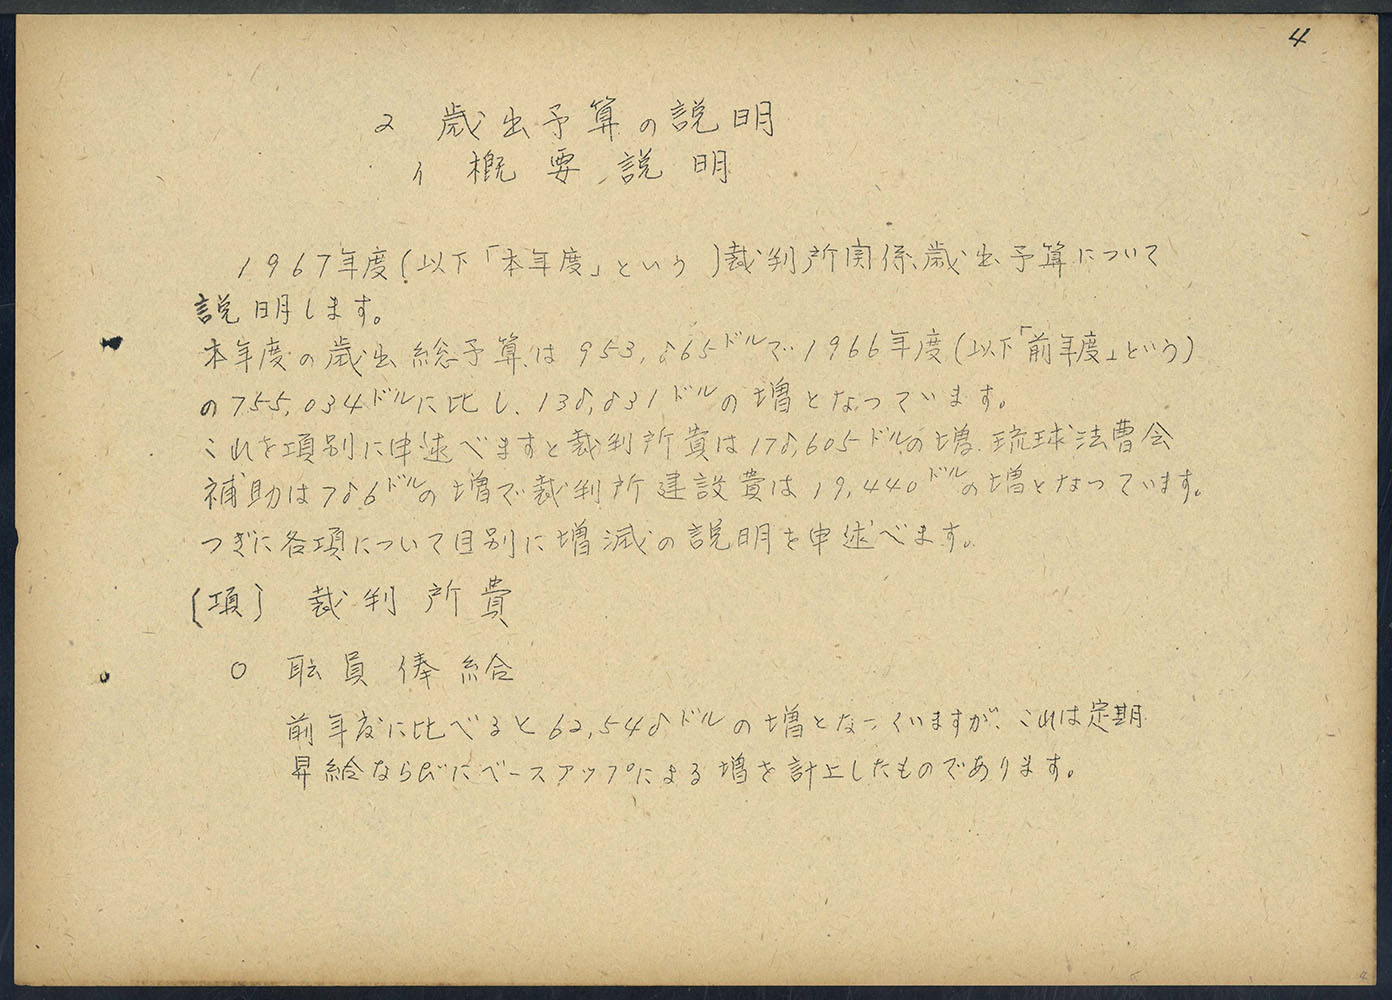 4
2 歳出予算の説明
イ 概要説明
1967年度(以下「本年度」という)裁判所関係歳出予算について
説明します。
本年度の歳出総予算は953,865ドルで、1966年度(以下「前年度」という)
の755,034ドルに比し、138,831ドルの増となっています。
これを項別に申述べますと裁判所費は178,605ドルの増、琉球法曹会
補助は786ドルの増で裁判所建設費は19,440ドルの増となっています。
つぎに各項について目別に増減の説明を申述べます。
〔項〕 裁判所費
○ 職員俸給
前年度に比べると62,548ドルの増となっていますが、これは定期
昇給ならびにベースアップによる増を計上したものであります。